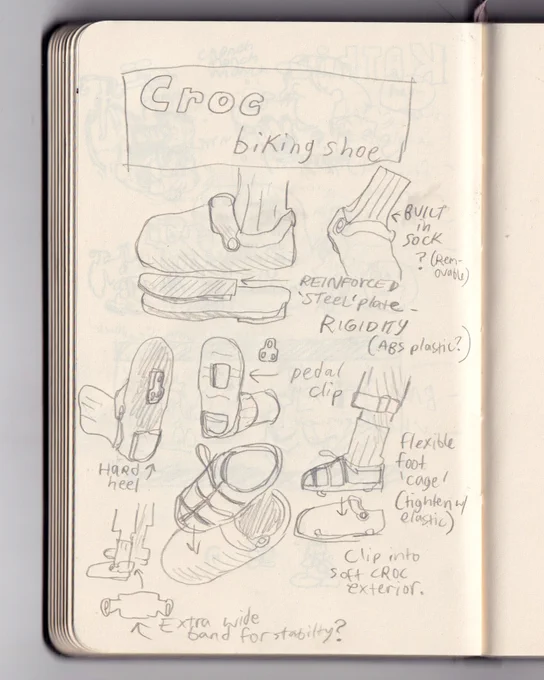 Croc
biking shoe
BUILT
in
SOCK
? (Rem-
ovable)
REINFORCED
'STEEL' plate -
RIGIDITY
(ABS plastic?)
pedal
clip
Hard
heel
flexible
foot
'cage'
(tighten w/
elastic)
Clip into
soft CROC
exterior.
Extra wide
band for stabilty?